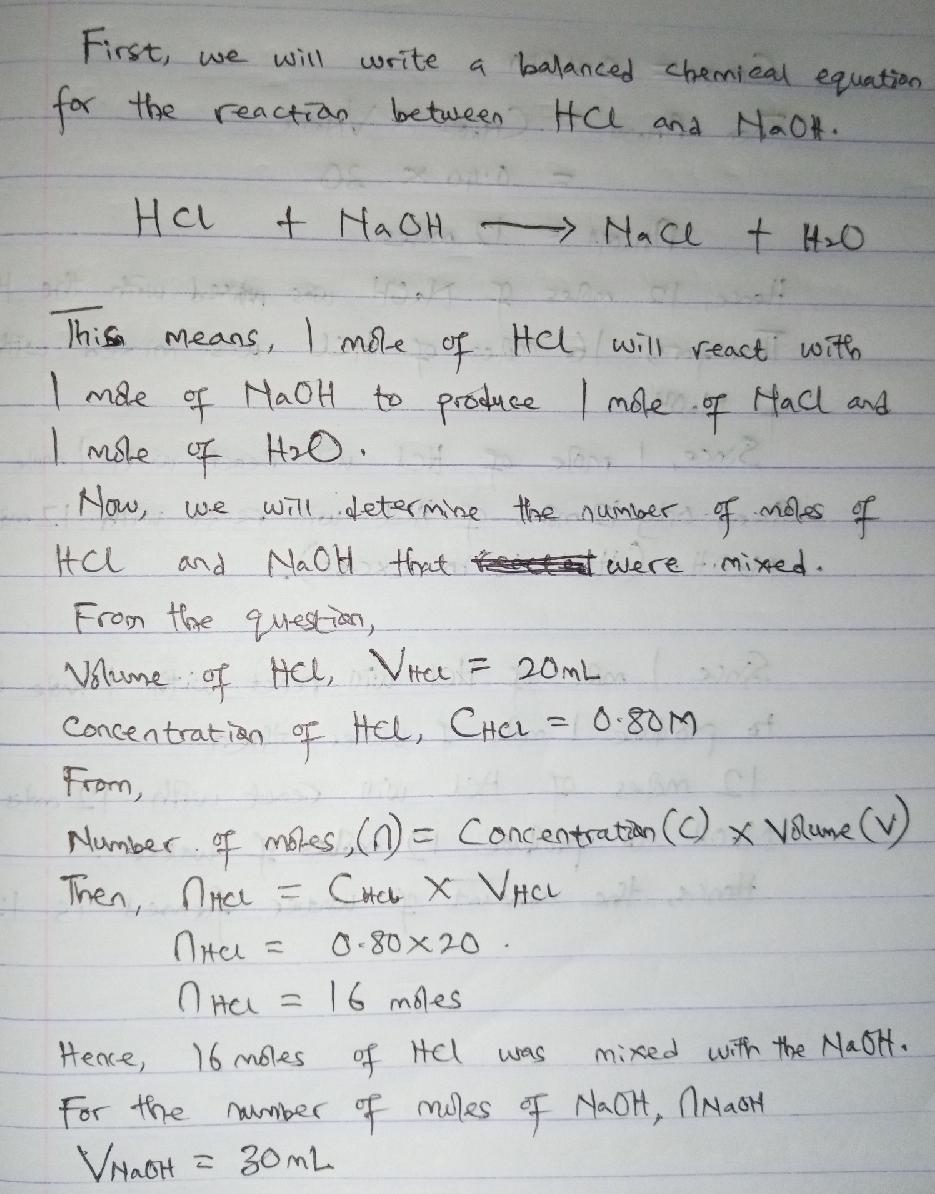 First, we will write a balanced chemical equation
for the reaction between HCl and NaOH.
HCl + NaOH → NaCl + H2O
This means, 1 mole of HCl will react with
1 mole of NaOH to produce 1 mole of NaCl and
1 mole of H2O.
Now, we will determine the number of moles of
HCl and NaOH that were mixed.
From the question,
Volume of HCl, VHCl = 20mL
Concentration of HCl, CHCl = 0.80M
From,
Number of moles, (n) = Concentration (C) x Volume (V)
Then, nHCl = CHCl X VHCl
nHCl = 0.80 x 20.
nHCl = 16 moles
Hence, 16 moles of HCl was mixed with the NaOH.
For the number of moles of NaOH, nNaOH
VNaOH = 30mL